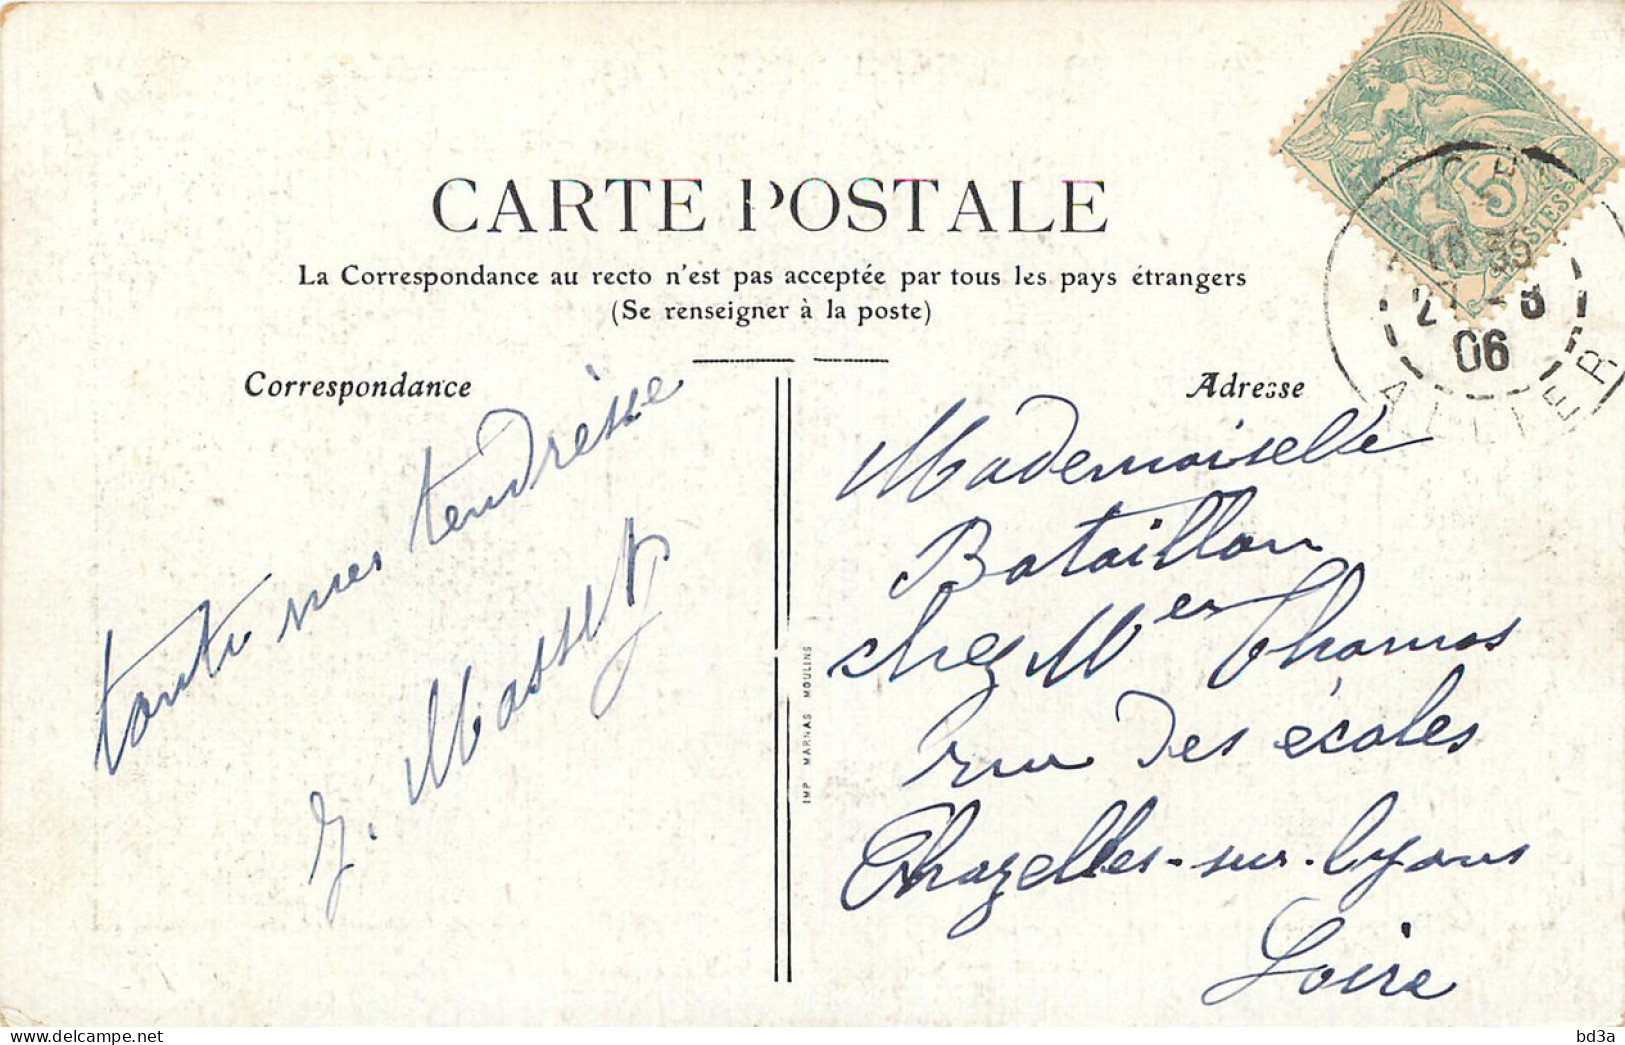 CARTE POSTALE
La Correspondance au recto n'est pas acceptée par tous les pays étrangers
(Se renseigner à la poste)
Correspondance
toute mes tendrèsse
J. Masset
IMP MARNAS MOULINS
Adresse
Mademoiselle
Bataillon
chez Mer Thomas
rue des écoles
Chazelles-sur-Lyons
Loire
5
POSTES
16
06
ALLIER
bd3a